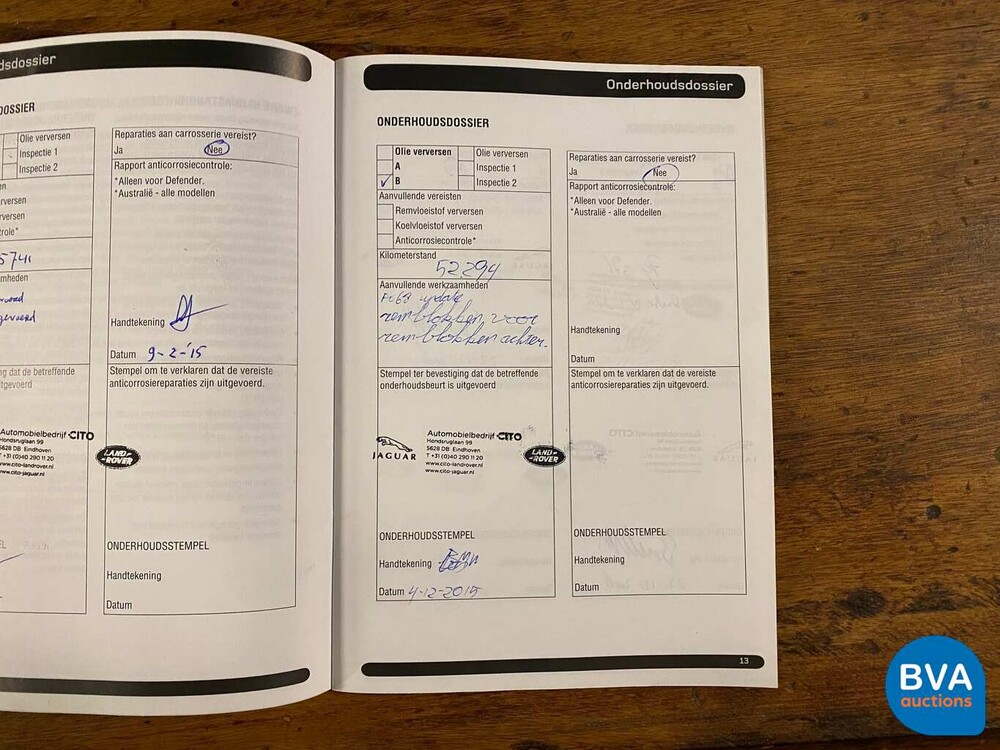 dsdossier
DOSSIER
Olie verversen
Inspectie 1
Inspectie 2
rversen
versen
role*
5741
mheden
ng dat de betreffende
itgevoerd
Automobielbedrijf CITO
Hondsruglaan 99
5628 DB Eindhoven
T +31 (0)40 290 11 20
www.cito-landrover.nl
www.cito-jaguar.nl
LAND-
ROVER
Reparaties aan carrosserie vereist?
Ja Nee
Rapport anticorrosiecontrole:
*Alleen voor Defender.
*Australië - alle modellen
Handtekening
Datum 9-2-'15
Stempel om te verklaren dat de vereiste
anticorrosiereparaties zijn uitgevoerd.
ONDERHOUDSSTEMPEL
Handtekening
Datum
Onderhoudsdossier
ONDERHOUDSDOSSIER
Olie verversen Olie verversen
A Inspectie 1
B Inspectie 2
Aanvullende vereisten
Remvloeistof verversen
Koelvloeistof verversen
Anticorrosiecontrole*
Kilometerstand
52.294
Aanvullende werkzaamheden
update
remblokken voor
remblokken achter.
Stempel ter bevestiging dat de betreffende
onderhoudsbeurt is uitgevoerd
JAGUAR
Automobielbedrijf CITO
Hondsruglaan 99
5628 DB Eindhoven
T +31 (0)40 290 11 20
www.cito-landrover.nl
www.cito-jaguar.nl
LAND-
ROVER
ONDERHOUDSSTEMPEL
Handtekening
Datum 4-12-2015
Reparaties aan carrosserie vereist?
Ja Nee
Rapport anticorrosiecontrole:
*Alleen voor Defender.
*Australië - alle modellen
Handtekening
Datum
Stempel om te verklaren dat de vereiste
anticorrosiereparaties zijn uitgevoerd.
ONDERHOUDSSTEMPEL
Handtekening
Datum
13
BVA
auctions